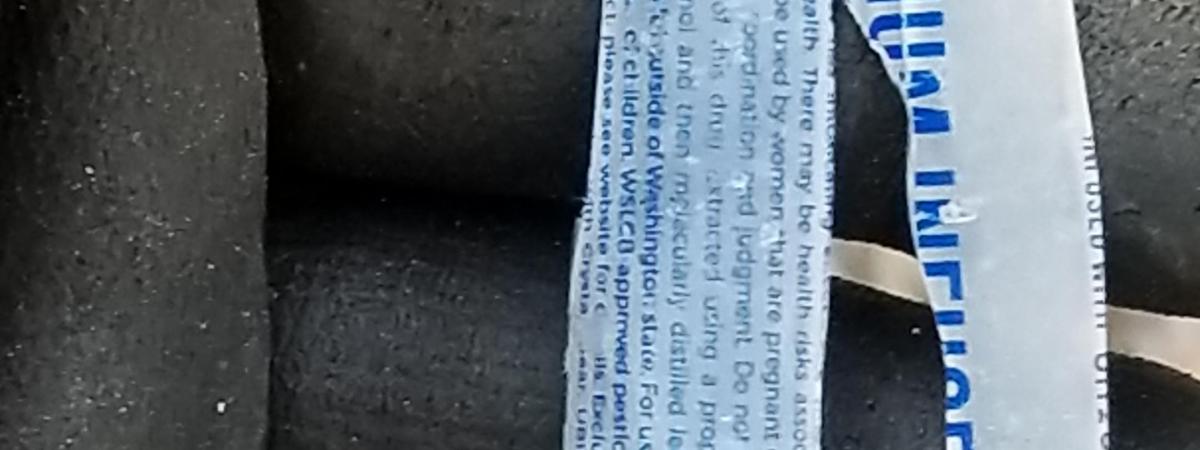 INFUSED WITH
IUM INFUSE
ealth. There may be health risks assoc
be used by women that are pregnant
oordination and judgment. Do not
of this drug extracted using a prop
nol and then molecularly distilled le
outside of Washington state. For us
of children. WSLCB approved pestic
ct. please see website for ils. Exclu
with Crysta